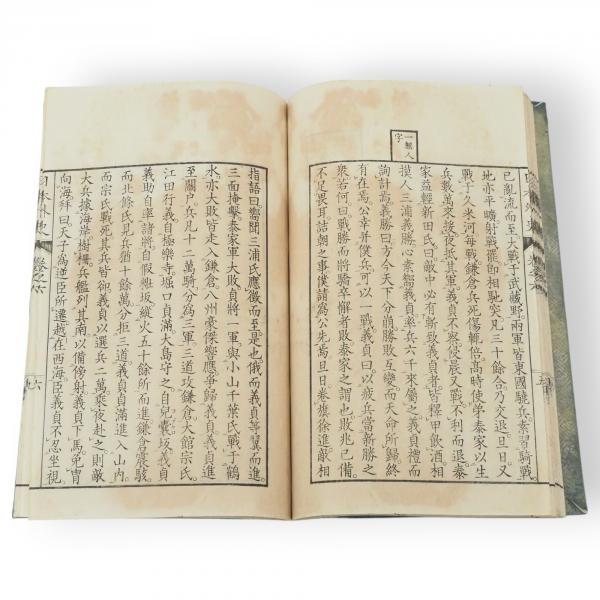 一無人
字
日本外史 卷之六
已亂流而至大戰于武藏野。兩軍皆東國驍兵素習騎戰
地亦平曠射戰罷卽相馳突凡三十餘合乃交退旦日又
戰于久米河每戰鎌倉兵死傷輒倍高時使弟泰家以生
兵數萬來援夜抵其軍義貞不察侵晨又戰不利而退泰
家益輕新田氏曰敵中必有斬致義貞者皆釋甲飲酒相
摸人三浦義勝心素嚮義貞率兵六千來屬之義貞禮而
詢計焉義勝曰方今天下分崩勝敗互變而天命所歸終
有在焉公幸并僕兵可以一戰義貞曰以疲兵當新勝之
衆若何曰戰勝而將驕卒懈者敗泰家之謂也敗兆已備
不足畏耳詰朝之事僕請爲公先焉旦日卷旗徐進敵相
指語曰嚮聞三浦氏應徵而至是也俄而義貞等翼而進
三面掩擊泰家軍大敗貞將一軍與小山千葉氏戰于鶴
水亦大敗皆走入鎌倉八州豪傑響應爭歸義貞義貞進
至關戶兵凡十二萬騎分爲三軍三道攻鎌倉大館宗氏
江田行義自極樂寺堀口貞滿大島守之自兒囊坂義貞
義助自率諸將自假粧坂縱火五十餘所而進鎌倉震駭
而北條氏見兵猶十餘萬分拒三道義貞貞滿進入山內
而宗氏戰死其兵皆卻義貞以選兵二萬乘夜赴之則敵
大兵據海岸樹柵兵艦列其南以備傍射義貞下馬免冑
向海拜曰天子爲逆臣所遷越在西海臣義貞不忍坐視
日本外史 卷之六 六